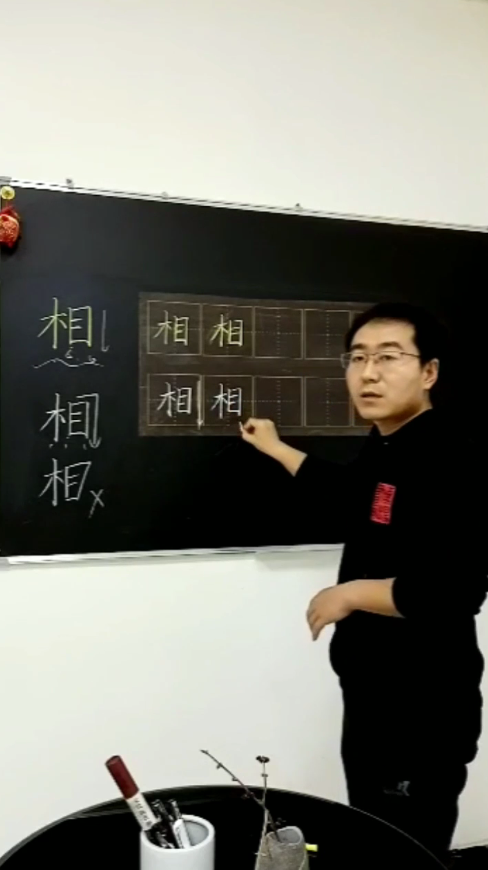 相
相 相
相
相 相
相